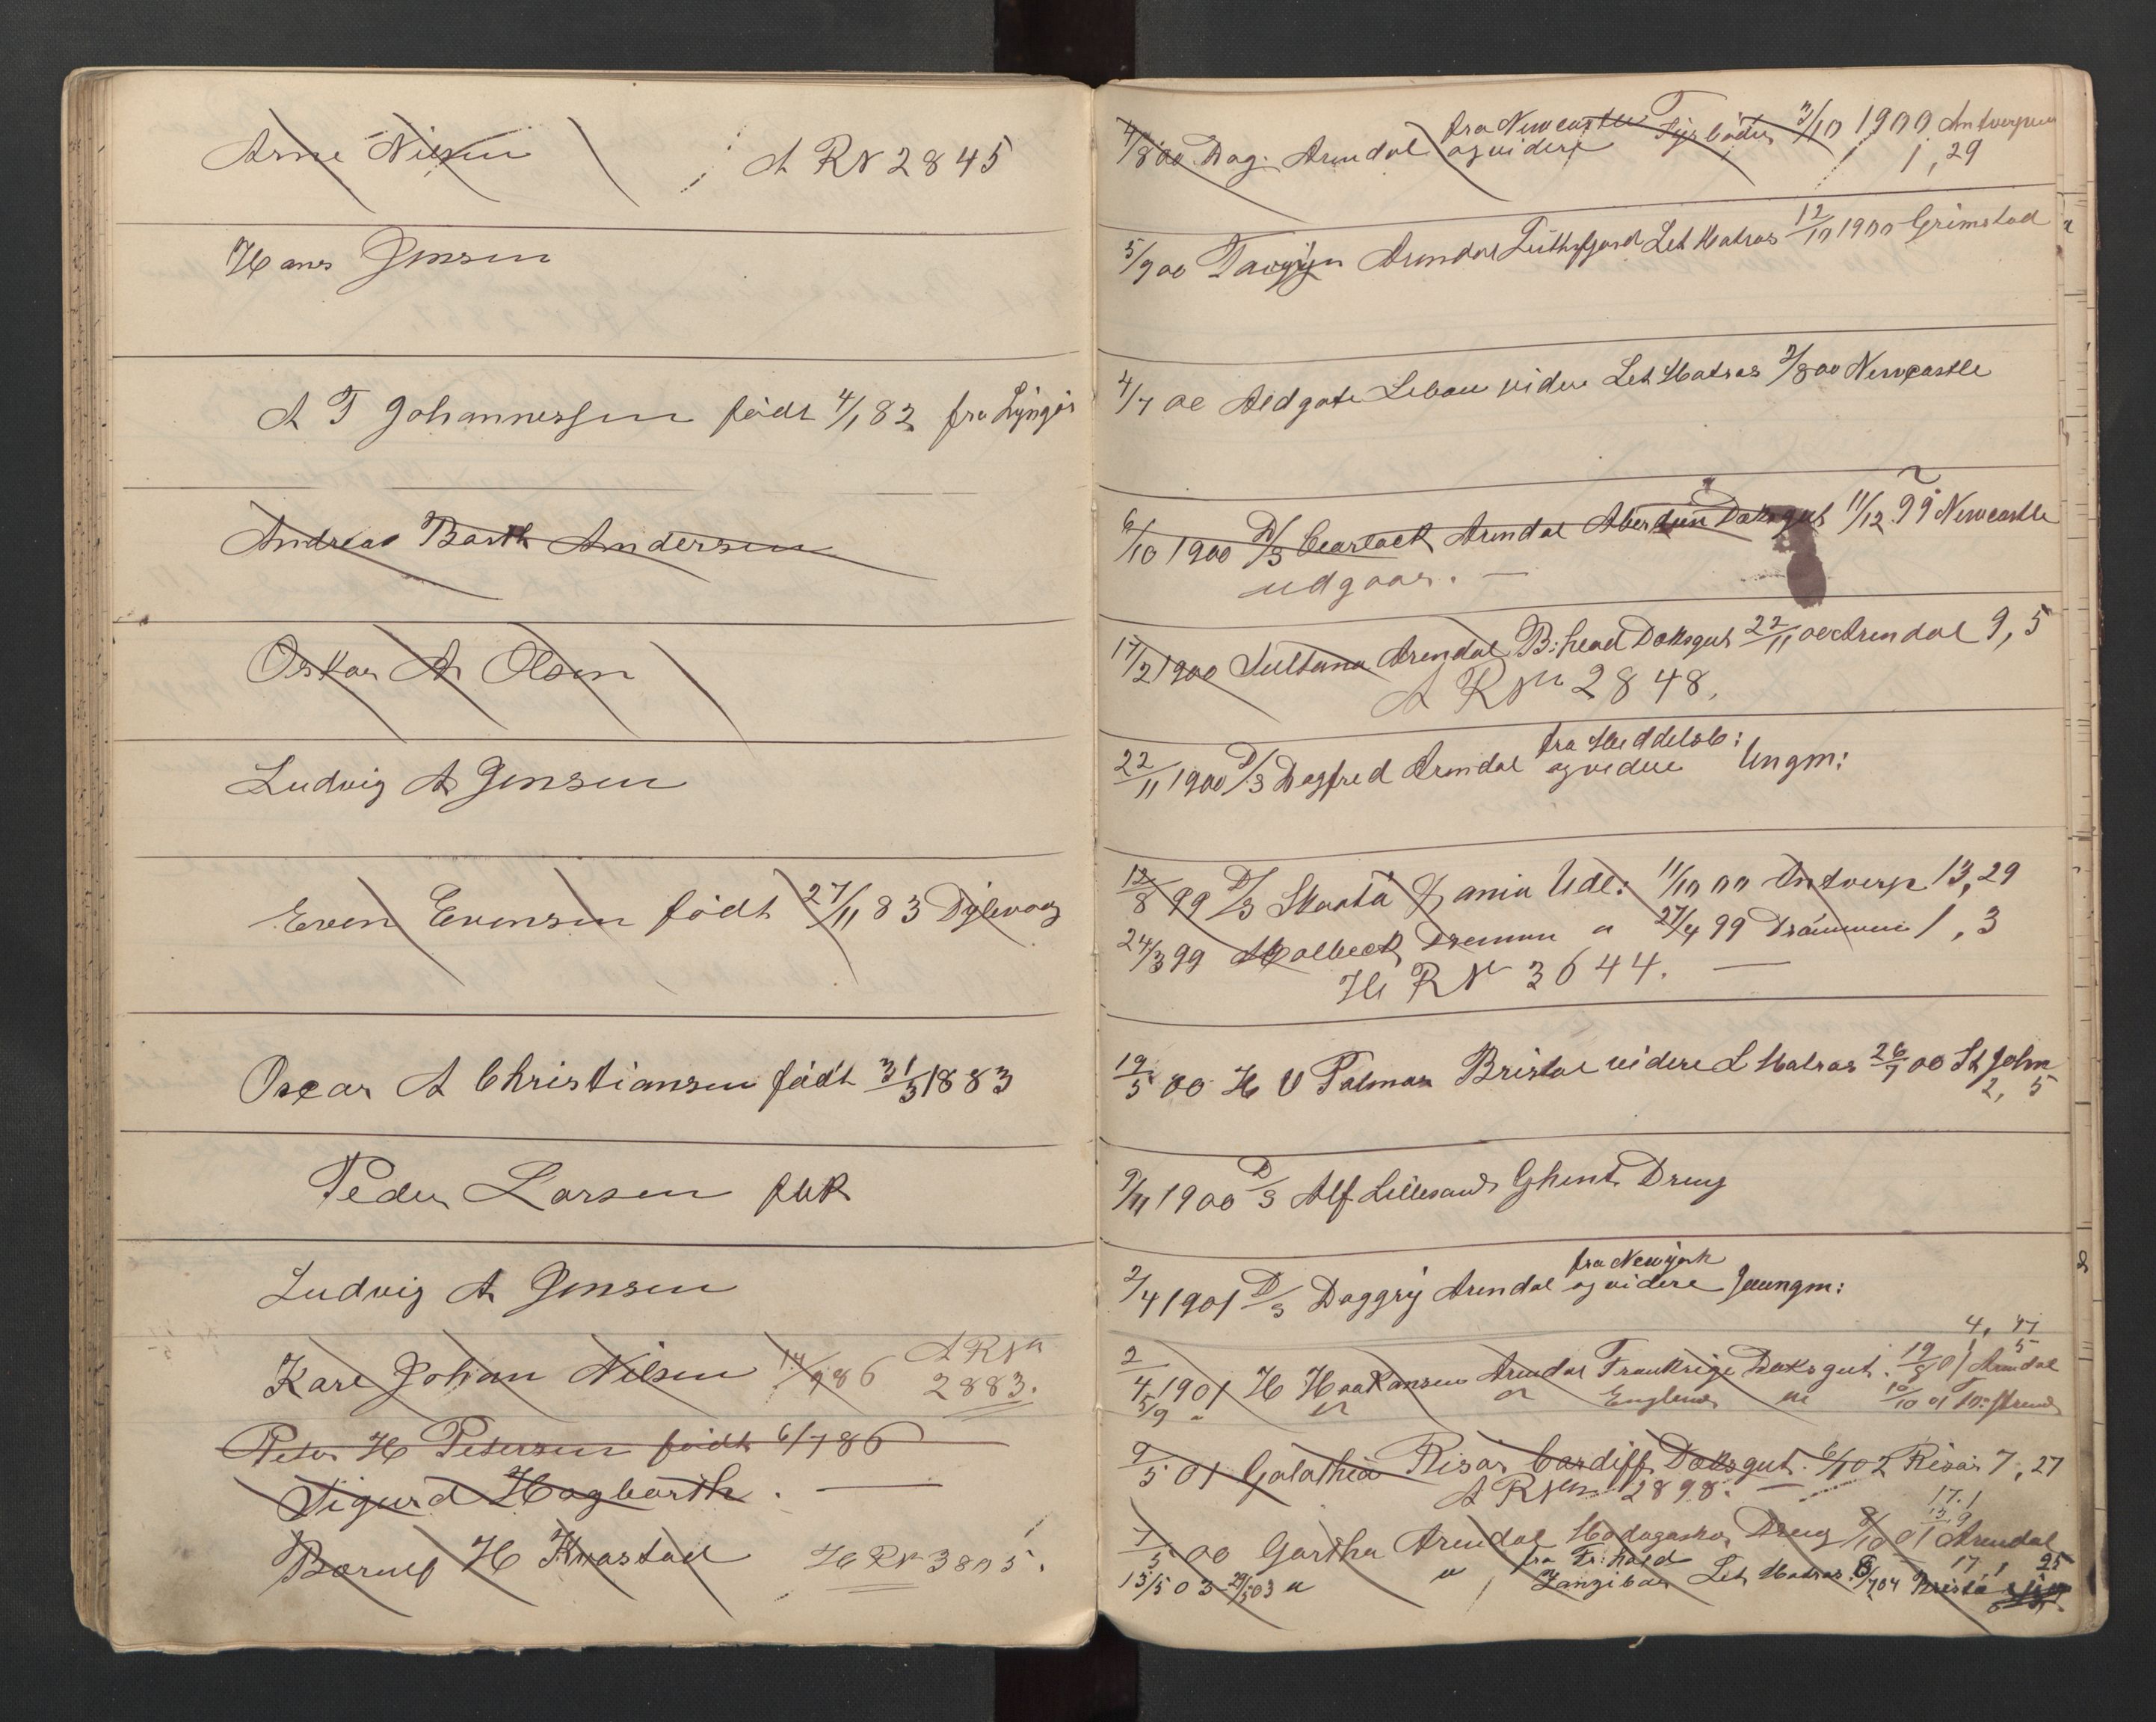 Arne Nilsen A RN 2845
Hans Jensen
A T Johannessen født 4/1 82 fra Lyngør
Andreas Barth Andersen
Oskar A Olsen
Ludvig A Jensen
Even Evensen født 27/11 83 Dybvaag
Oscar A Christiansen født 31/3 1883
Peder Larsen
Ludvig A Jensen
Karl Johan Nilsen 14/9 86 A RNr
2883.
Peter H Petersen født 6/7 86
Sigurd Hagbarth. —
H Kvastad H RNr 3805.
fra Newcastle
4/8 00 Dag. Arendal og videre Fyrbøder 3/10 1900 Antverpen
1, 29
5/9 00 Arendal Let Matros 12/10 1900 Grimstad
4/7 00 Aldgate Libau videre Let Matros 2/8 00 Newcastle
6/10 1900 D/S Arendal Aberdeen Dæksgut 11/12 99 Newcastle
udgaar. —
17/2 1900 Sultana Arendal B:head Dæksgut 22/11 00 Arendal 9, 5
A RNr 2848.
fra Middelsb:
22/11 1900 D/S Dagfred Arendal og videre Ungm:
12/8 99 D/S Skaatø Kr ania Udl: 11/10 00 Antverp 13, 29
24/3 99 Holbeck Dramen " 27/4 99 Drammen 1, 3
H RNr 3644. —
19/5 00 H V Palmar Bristol videre L Matros 26/7 00 St John
2, 5
9/11 1900 D/S Alf Lillesand Ghent Dreng
fra Newyork
2/4 1901 D/S Daggry Arendal og videre Jungm:
4, 17
2/4 1901 H Haakansen Arendal Frankrige Dæksgut. 19/8 01 Arendal
5/9 " " " England " 10/10 01
9/5 01 Galathea Risør Cardiff Dæksgut. 6/1 02 Risør 7, 27
A RNr 2898. —
17. 1
7/5 00 Gartha Arendal Madagaskar Dreng 8/10 01 Arendal
fra Fr:hald
13/5 03 29/5 03 " " Zangibar Let Matros